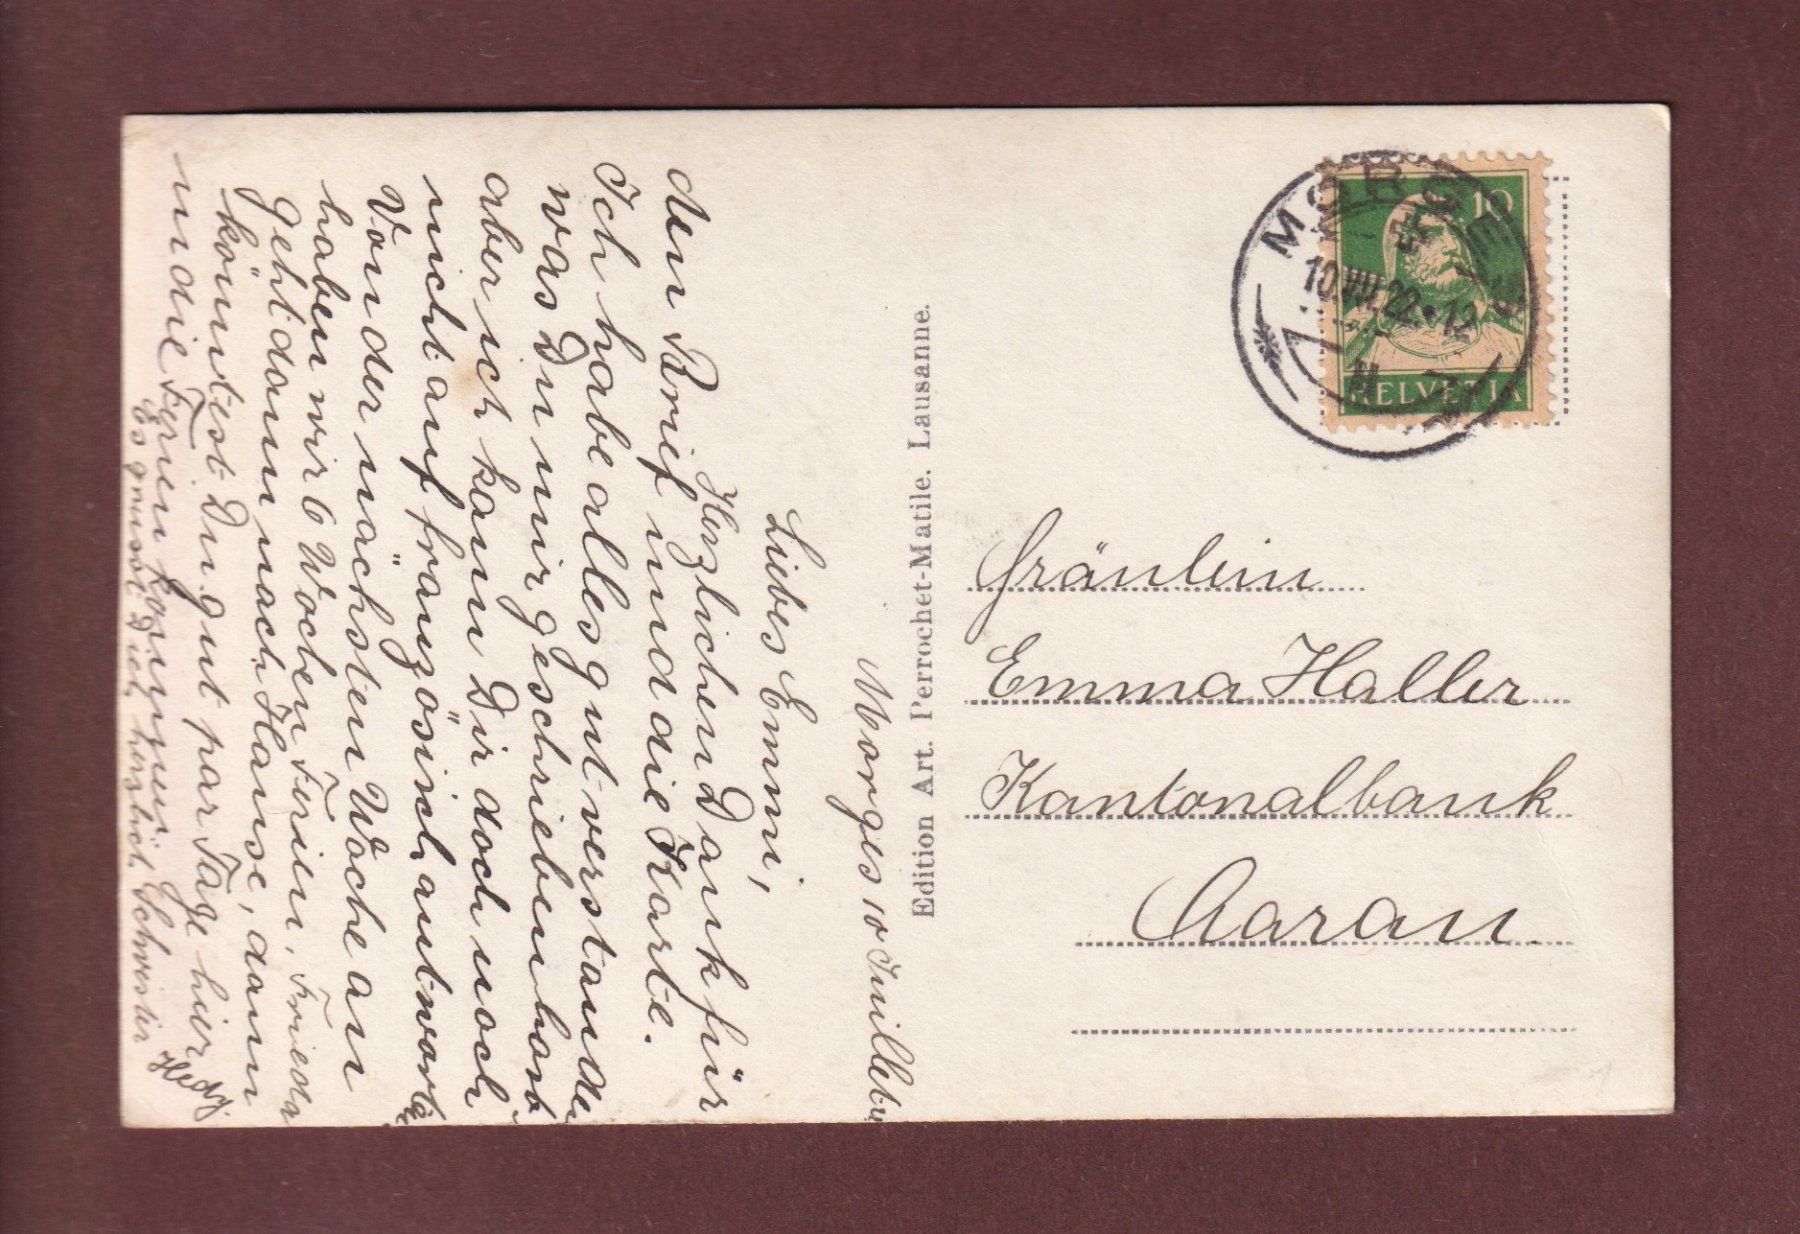 Morges 10 Juillet
Liebes Emmi,
Herzlichen Dank für
den Brief und die Karte.
Ich habe alles gut verstanden
was Du mir geschrieben hast
aber ich kann Dir doch noch
nicht auf französich antworten
Von der nächsten Woche an
haben wir 6 Wochen Ferien. Frieda
geht dann nach Hause, dann
könntest Du gut par Tage hier
in die Ferien kommen.
Es grüsst Dich herzlich Schwester
Hedy
Edition Art. Perrochet-Matile. Lausanne.
MORGES
10.VII.22.-12
10
HELVETIA
Fräulein
Emma Haller
Kantonalbank
Aarau.